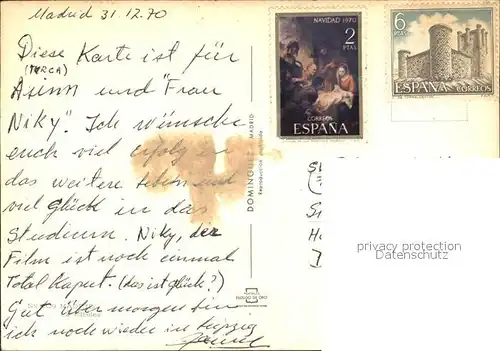 Madrid 31.12.70
Diese Karte ist für
(TURCA)
Asinn und "Frau
Niky". Ich wünsche
euch viel Erfolg
das weitere leben und
viel Glück in das
Studium. Niky, der
Film ist noch einmal
Total Kaputt. (das ist glück?)
Gut übermorgen bin
ich noch wieder in Leipzig
DOMINGUEZ - MADRID
NAVIDAD 1970
2
PTAS
CORREOS
ESPAÑA
6
PTAS
ESPAÑA
CORREOS
privacy protection
oldthing.de